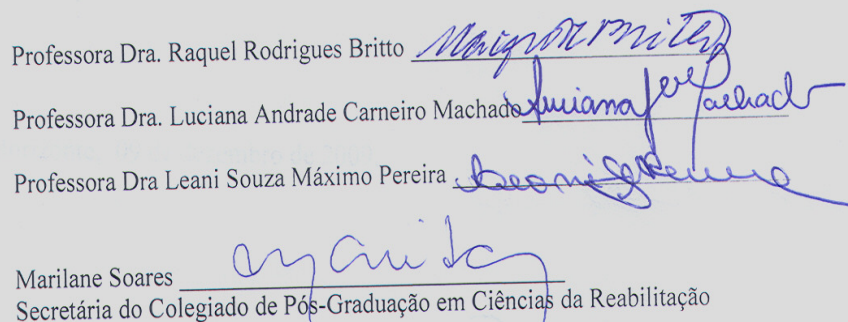 Professora Dra. Raquel Rodrigues Britto
Professora Dra. Luciana Andrade Carneiro Machado Luciana
Professora Dra Leani Souza Máximo Pereira
Marilane Soares
Secretária do Colegiado de Pós-Graduação em Ciências da Reabilitação